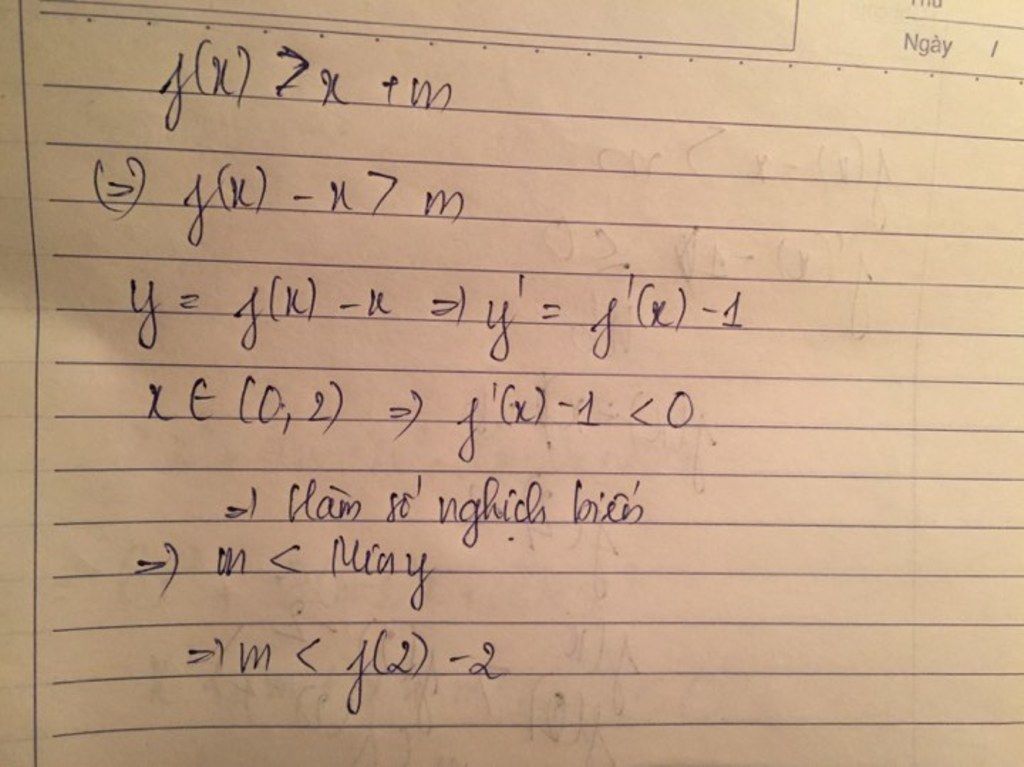 Thứ
Ngày /
f(x) > x + m
(=>) f(x) - x > m
y = f(x) - x => y' = f'(x) - 1
x ∈ (0, 2) => f'(x) - 1 < 0
=> Hàm số nghịch biến
=> m < Min y
=> m < f(2) - 2